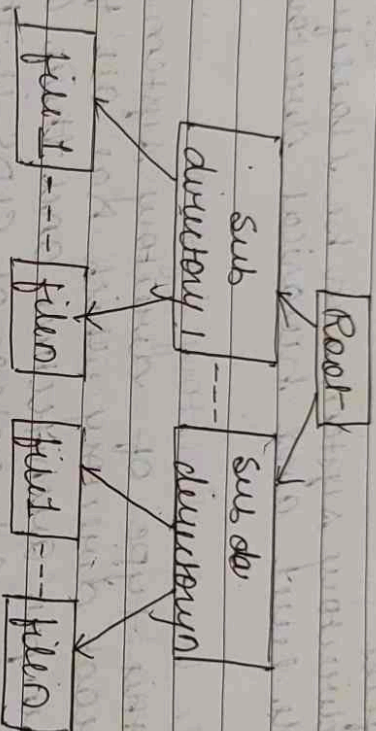 Root
Sub
directory 1 --- Sub da
directory n
file 1 --- file n
file 1 --- file n